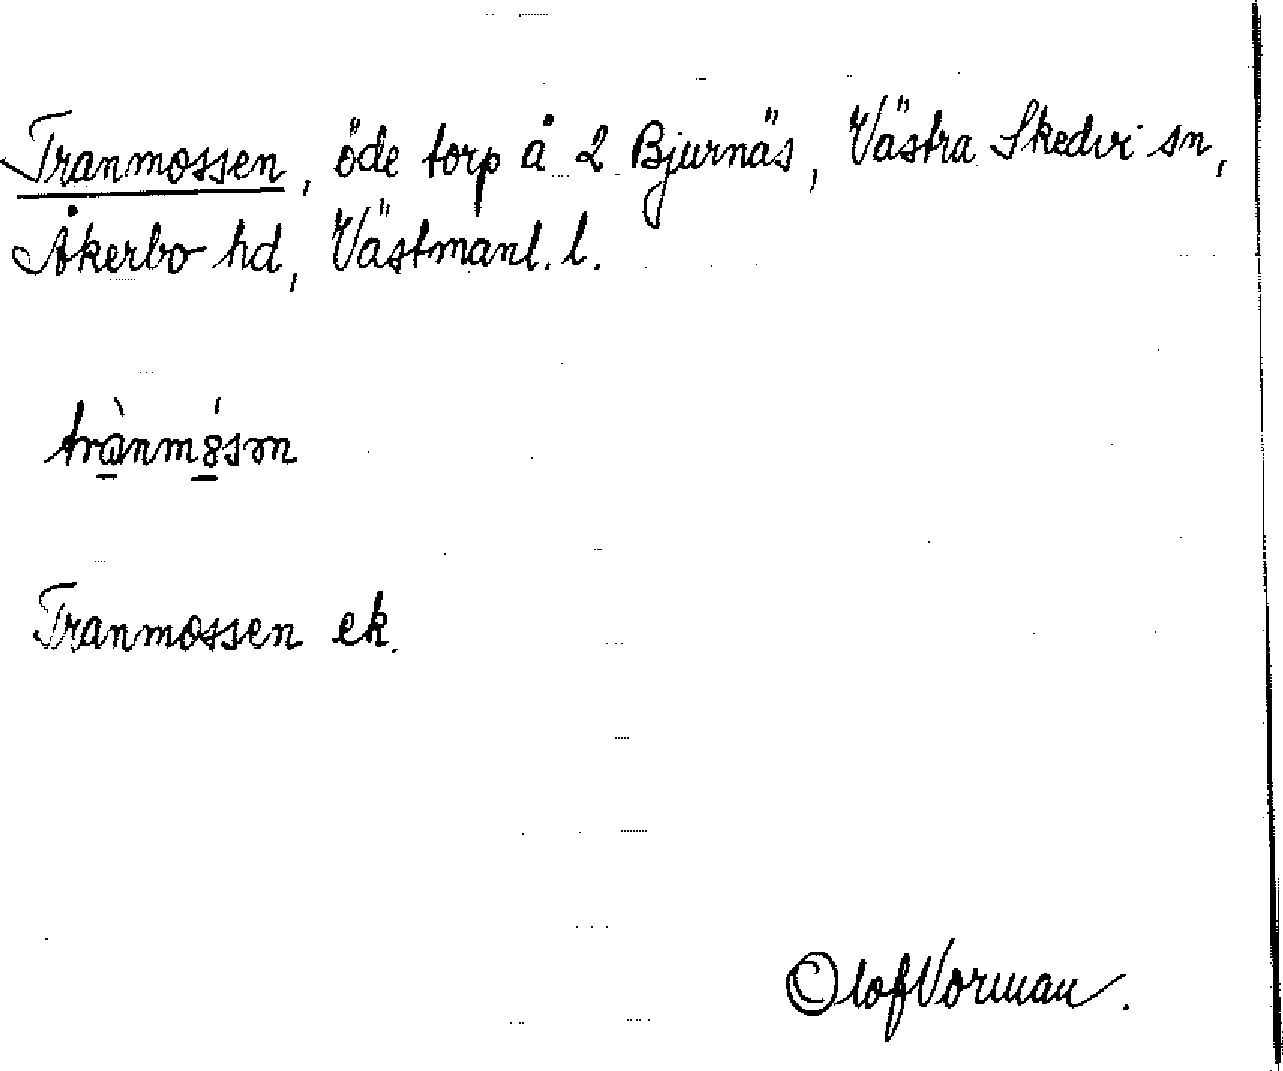 Tranmossen, öde torp å 2 Bjurnäs, Västra Skedvi sn,
Åkerbo hd, Västmanl. l.
trànm8́sən
Tranmossen ek.
Olof Vorman.